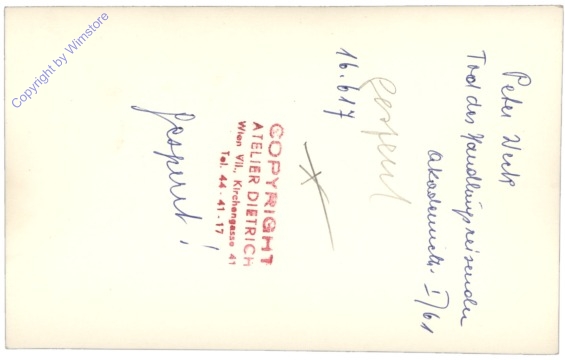 Peter Weck
Tod des Handlungsreisenden
Akademieth. I/61
gesperrt
16.617
COPYRIGHT
ATELIER DIETRICH
Wien VII., Kirchengasse 41
Tel. 44-41-17
Gesperrt!
Copyright by Wimstore